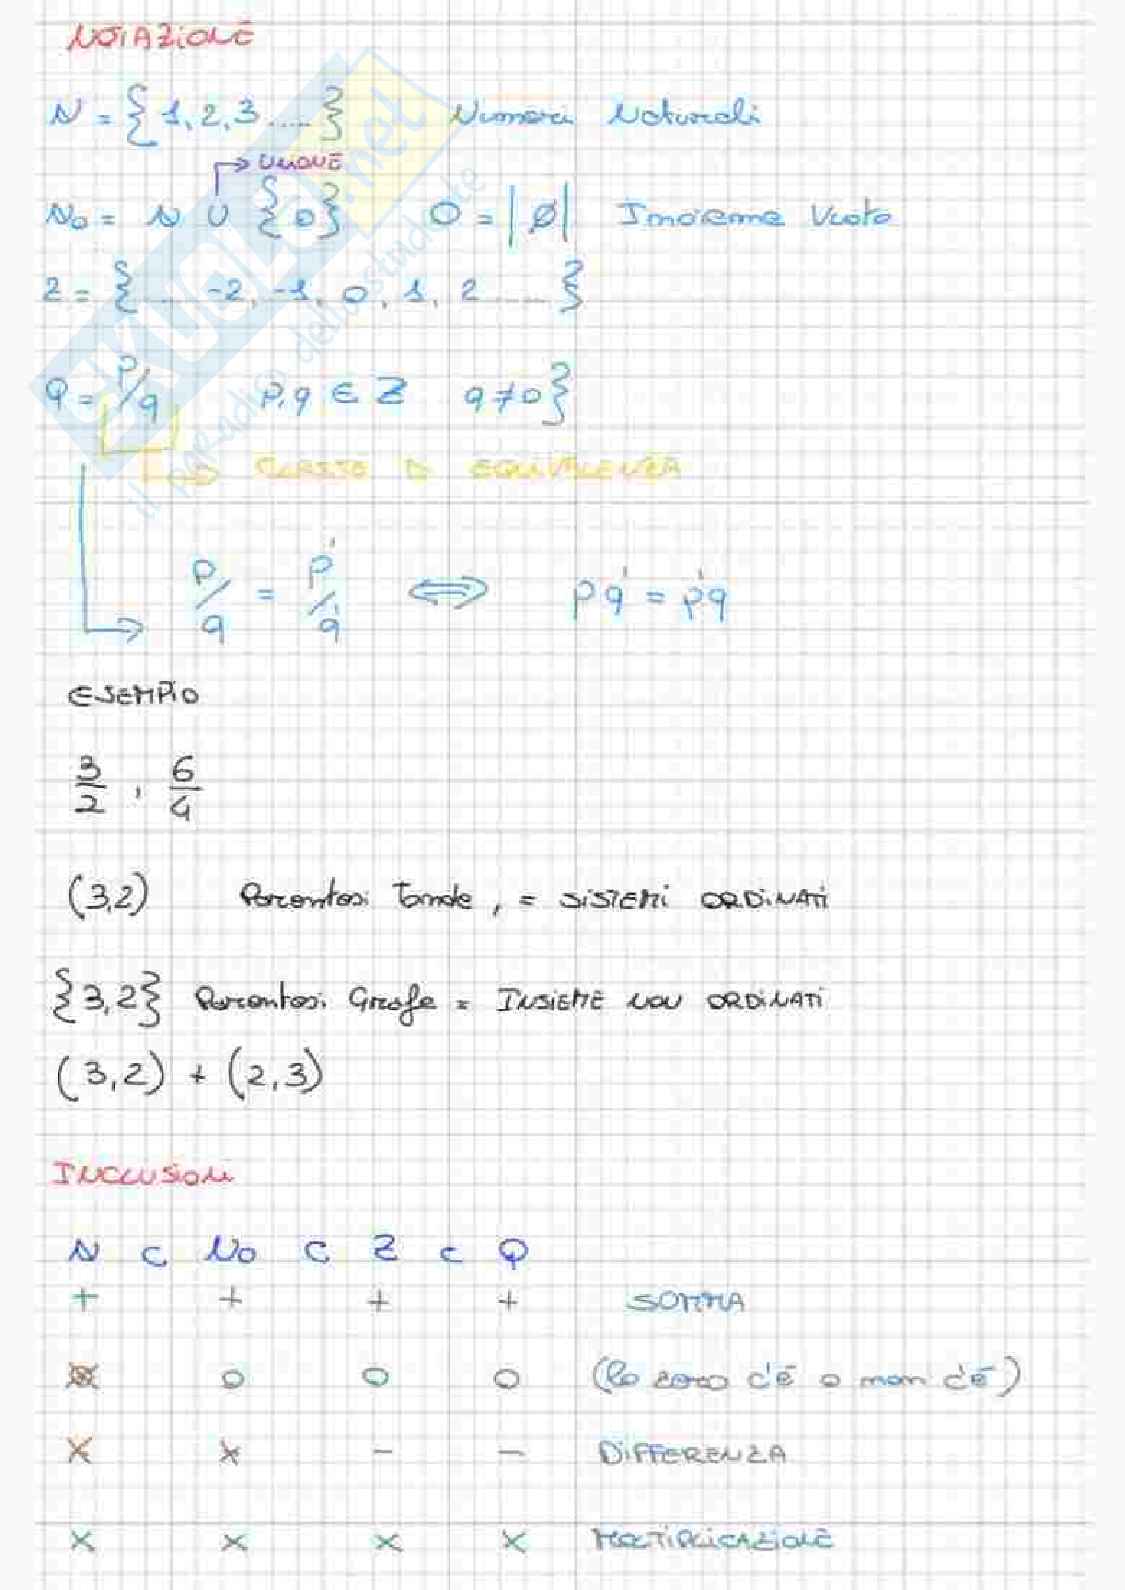 NOTAZIONE
N = { 1, 2, 3 ..... } Numeri Naturali
→ UNIONE
N₀ = N ∪ {0} 0 = |∅| Insieme Vuoto
Z = { ... -2, -1, 0, 1, 2 ..... }
Q = p/q p,q ∈ Z q ≠ 0}
→ CLASSE D EQUIVALENZA
p/q = p'/q' ⟺ pq' = p'q
ESEMPIO
3/2 , 6/4
(3,2) Parentesi Tonde , = SISTEMI ORDINATI
{3,2} Parentesi Grafe = INSIEME NON ORDINATI
(3,2) + (2,3)
INCLUSIONI
N ⊂ N₀ ⊂ Z ⊂ Q
+ + + + SOMMA
0 0 0 (lo zero c'è o non c'è)
× × − − DIFFERENZA
× × × × MOLTIPLICAZIONE
SKUOLA.net
il paradiso dello studente